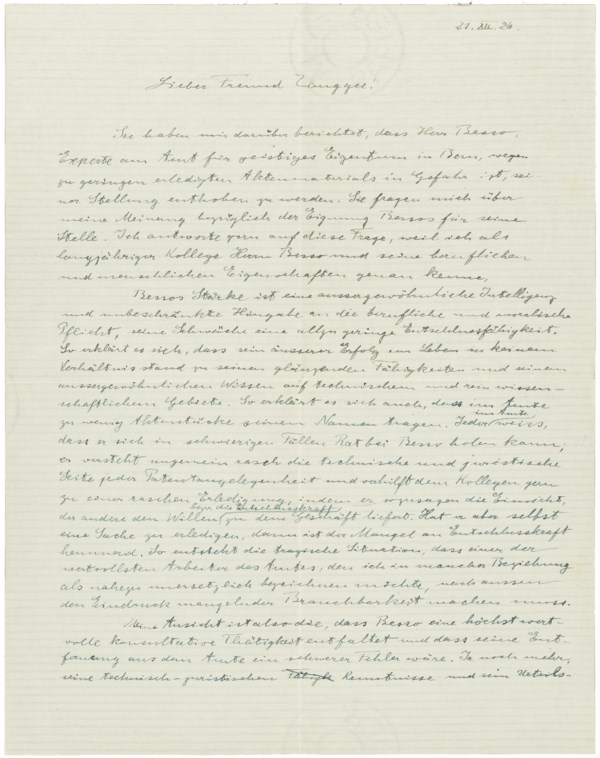 21. XII. 26.
Lieber Freund Zangger!
Sie haben mir darüber berichtet, dass Herr Besso,
Experte am Amt für geistiges Eigentum in Bern, wegen
zu geringen erledigten Aktenmaterials in Gefahr ist, sei-
ner Stellung enthoben zu werden. Sie fragen mich über
meine Meinung bezüglich der Eignung Bessos für seine
Stelle. Ich antworte gern auf diese Frage, weil ich als
langjähriger Kollege Herrn Besso und seine beruflichen
und menschlichen Eigenschaften genau kenne.
Bessos Stärke ist eine aussergewöhnliche Intelligenz
und unbeschränkte Hingabe an die berufliche und moralische
Pflicht, seine Schwäche eine allzu geringe Entschlussfähigkeit.
So erklärt es sich, dass sein äusserer Erfolg im Leben in keinem
Verhältnis stand zu seinen glänzenden Fähigkeiten und seinem
aussergewöhnlichen Wissen auf technischem und rein wissen-
schaftlichem Gebiete. So erklärt es sich auch, dass im Amte
zu wenig Aktenstücke seinen Namen tragen. Jeder im Amte weiss,
dass er sich in schwierigen Fällen Rat bei Besso holen kann;
er versteht ungemein rasch die technische und juristische
Seite jeder Patentangelegenheit und verhilft dem Kollegen gern
zu einer raschen Erledigung, indem er sozusagen die Einsicht,
der andere den Willen bezw. die Entschlusskraft zu dem Geschäft liefert. Hat er aber selbst
eine Sache zu erledigen, dann ist der Mangel an Entschlusskraft
hemmend. So entsteht die tragische Situation, dass einer der
wertvollsten Arbeiter des Amtes, den ich in mancher Beziehung
als nahezu unersetzlich bezeichnen möchte, nach aussen
den Eindruck mangelnder Brauchbarkeit machen muss.
Meine Ansicht ist also die, dass Besso eine höchst wert-
volle konsultative Thätigkeit entfaltet und dass seine Ent-
fernung aus dem Amte ein schwerer Fehler wäre. Ja noch mehr,
seine technisch-juristischen Kenntnisse und sein Urteils-